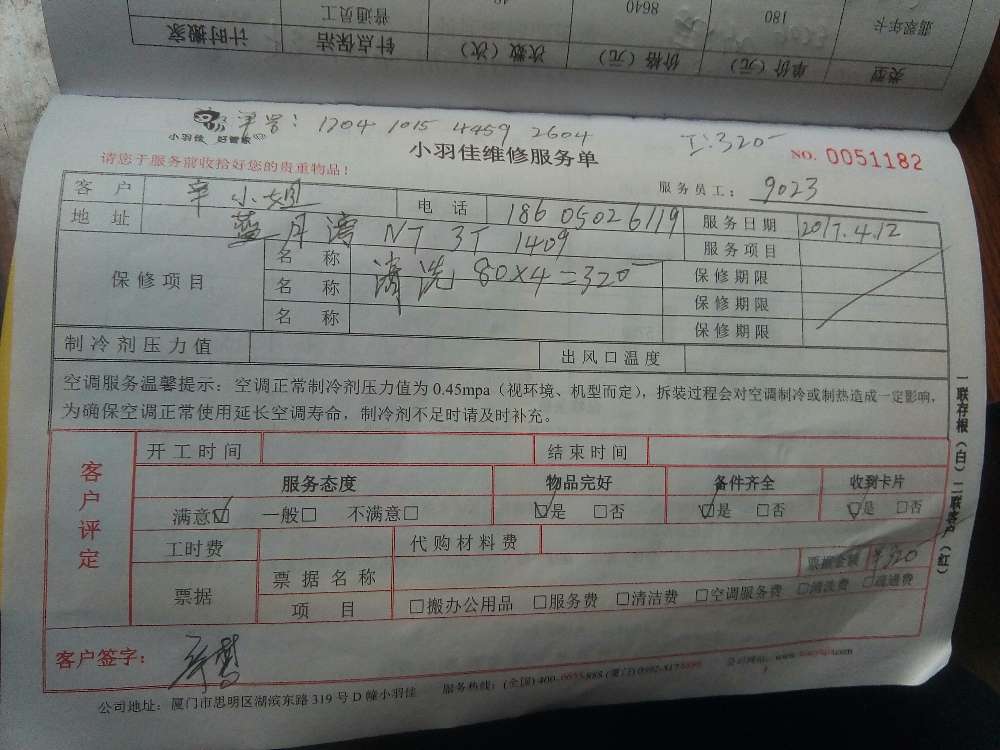 类型 单价（元） 价格（元） 次数（次） 针点保洁 计时搬家
翡翠年卡 180 8640 48 普通员工
单号：1204 1015 4459 2604
工：320
小羽佳 好管家
小羽佳维修服务单
NO. 0051182
请您于服务前收拾好您的贵重物品！
服务员工： 9023
客户 辛小姐 电话 18605026119 服务日期 2017.4.12
地址 蓝月湾 NT 3T 1409 服务项目
保修项目
名称 清洗 80×4=320 保修期限
名称 保修期限
名称 保修期限
制冷剂压力值 出风口温度
空调服务温馨提示：空调正常制冷剂压力值为 0.45mpa（视环境、机型而定），拆装过程会对空调制冷或制热造成一定影响，
为确保空调正常使用延长空调寿命，制冷剂不足时请及时补充。
客户评定
开工时间 结束时间
服务态度 物品完好 备件齐全 收到卡片
满意☑ 一般□ 不满意□ ☑是 □否 ☑是 □否 ☑是 □否
工时费 代购材料费
票据 票据名称 票据金额 ￥320
项目 □搬办公用品 □服务费 □清洁费 □空调服务费 □清洗费 □疏通费
客户签字：
公司地址：厦门市思明区湖滨东路 319 号 D 幢小羽佳 服务热线：(全国) 400-0055-888 (厦门) 公司网站：www.
一联存根（白） 二联客户（红）